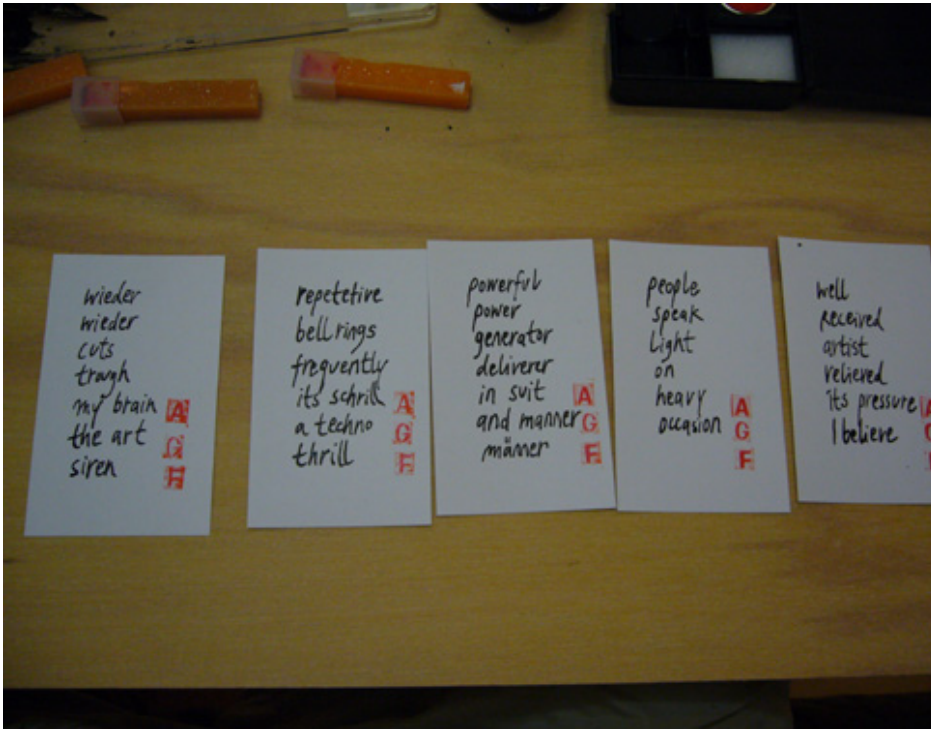 wieder
wieder
cuts
trough
my brain
the art
siren
A
G
F
repetetive
bell rings
frequently
its schrill
a techno
thrill
A
G
F
powerful
power
generator
deliverer
in suit
and manner
männer
A
G
F
people
speak
light
on
heavy
occasion
A
G
F
well
received
artist
reliered
its pressure
I believe
A
G